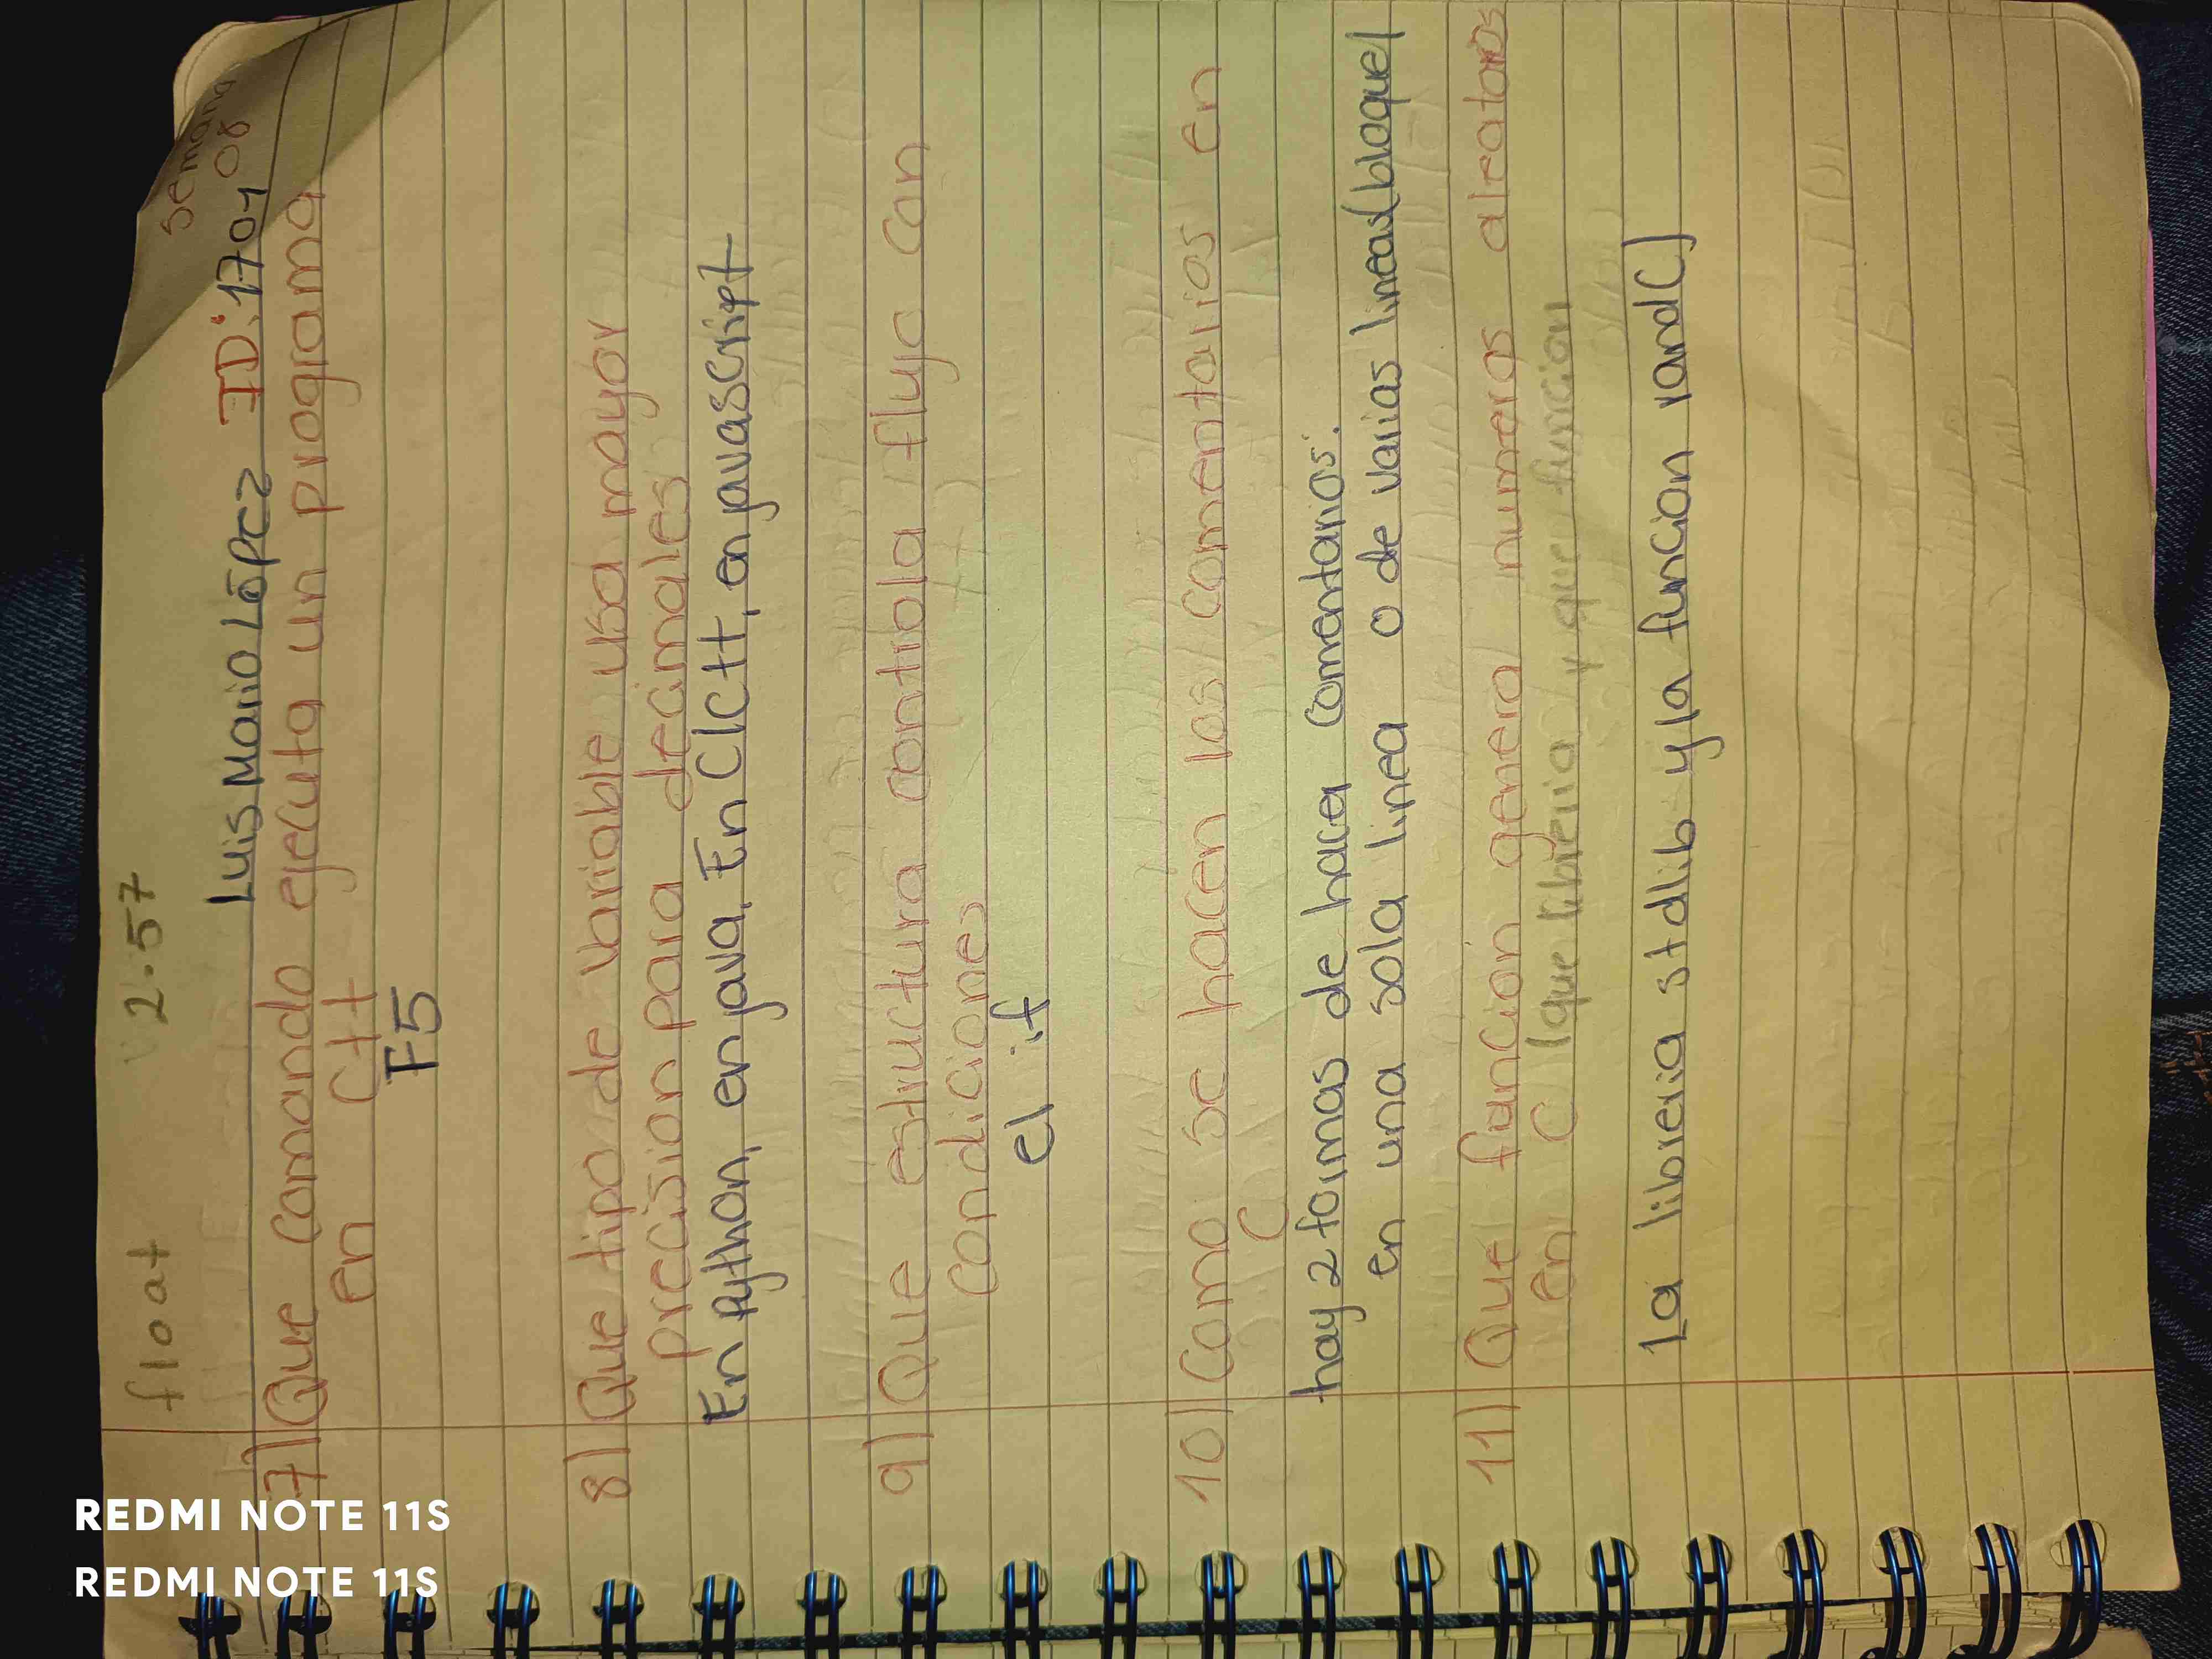 semana
float 2.57
08
Luis Mario López ID: 1701
7) Que comando ejecuta un programa
en C++
F5
8) Que tipo de variable usa mayor
precision para decimales
En Python, en java, En C/C++, en javascript
9) Que estructura controla flujo con
condiciones
el if
10) Como se hacen los comentarios en
C
hay 2 formas de hacer comentarios:
en una sola linea o de varias lineas(bloque)
11) Que funcion genera numeros aleatorios
en C (que libreria y que funcion
La libreria stdlib y la funcion rand()
REDMI NOTE 11S
REDMI NOTE 11S